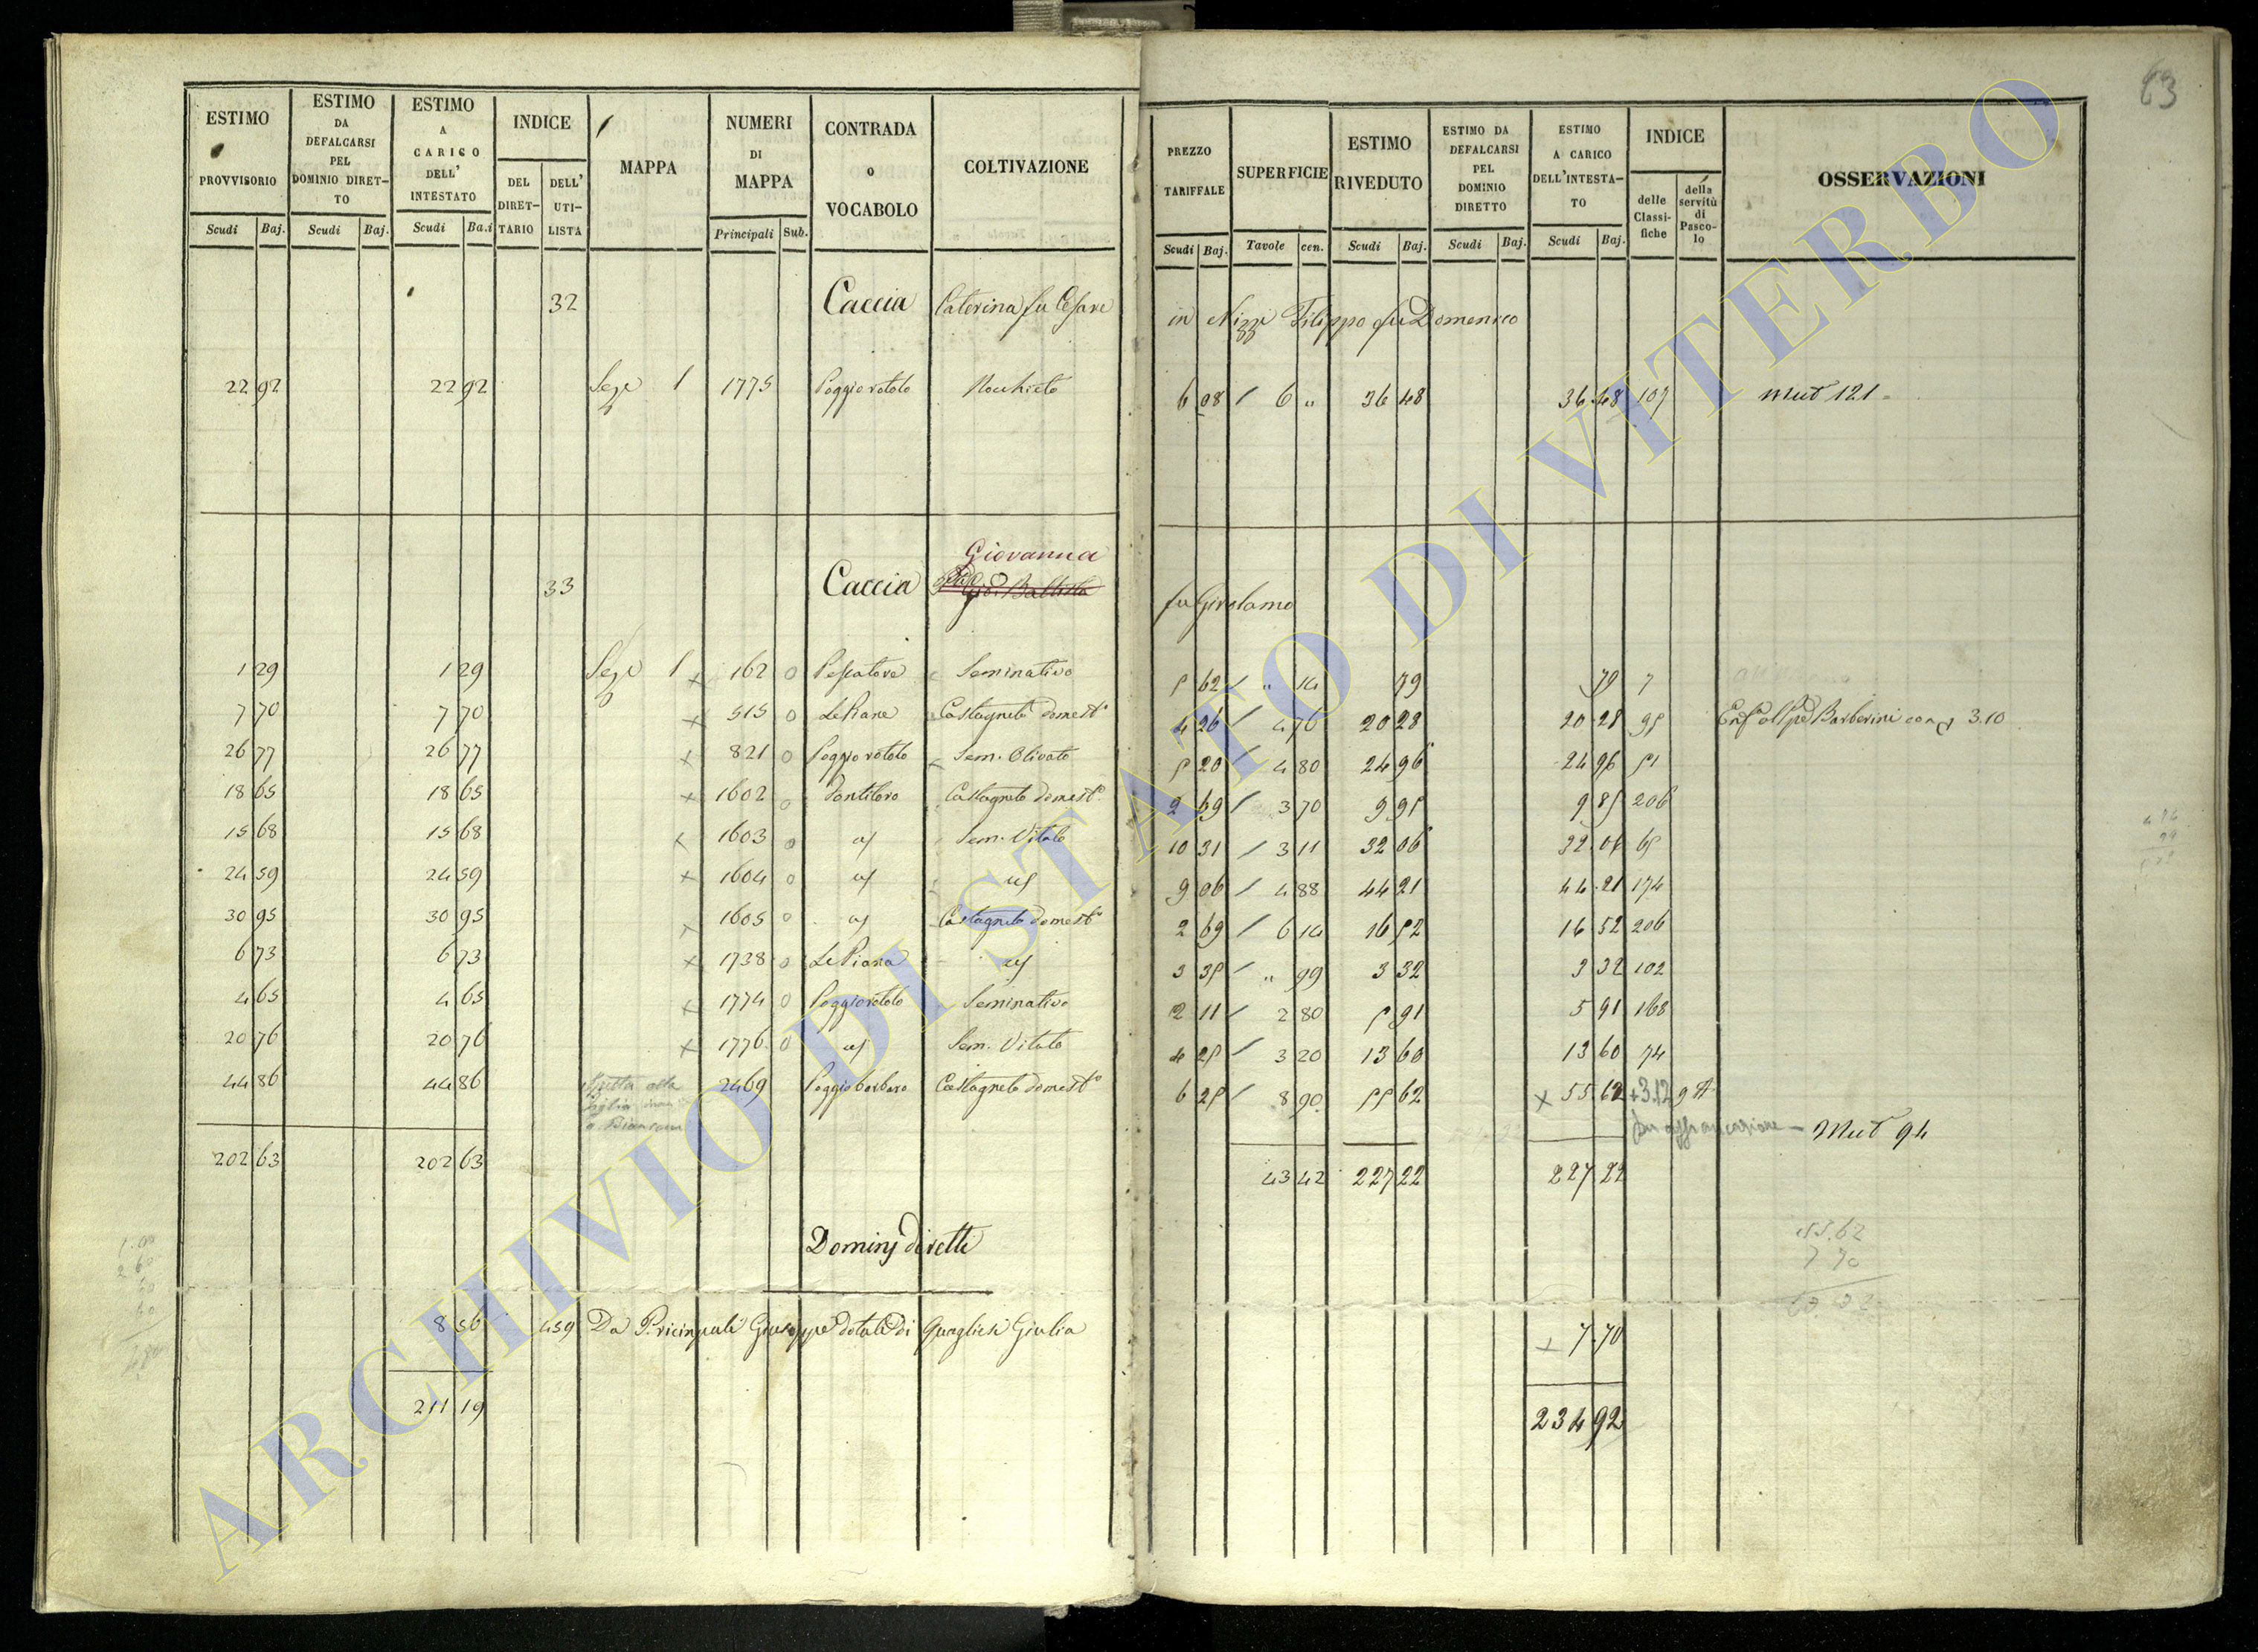 63
ESTIMO PROVVISORIO Scudi Baj.
ESTIMO DA DEFALCARSI PEL DOMINIO DIRET- TO Scudi Baj.
ESTIMO A CARICO DELL' INTESTATO Scudi Ba.i
INDICE DEL DIRET- TARIO DELL' UTI- LISTA
MAPPA
NUMERI DI MAPPA Principali Sub.
CONTRADA o VOCABOLO
COLTIVAZIONE
PREZZO TARIFFALE Scudi Baj.
SUPERFICIE Tavole cen.
ESTIMO RIVEDUTO Scudi Baj.
ESTIMO DA DEFALCARSI PEL DOMINIO DIRETTO Scudi Baj.
ESTIMO A CARICO DELL'INTESTA- TO Scudi Baj.
INDICE delle Classi- fiche della servitù di Pasco- lo
OSSERVAZIONI
32 Caccia Caterina fu Cesare in Nizzi Filippo fu Domenico
22 92 22 92 Seze 1 1775 Poggio rotolo Nocchieto 6 08 / 6 " 36 48 36.48 107 Mut 121
Giovanna
33 Caccia Gio: Battista fu Girolamo
1 29 1 29 Seze 1 x 162 0 Pescatore Seminativo 5 62 / " 14 79 79 7
7 70 7 70 x 515 0 Le Rane Castagneto domest° 4 26 / 4 76 20 28 20 28 95 Barberini 3.10
26 77 26 77 x 821 0 Poggio rotolo Sem. Olivato 5 20 / 4 80 24 96 24 96 51
18 65 18 65 x 1602 0 Castagneto domest° 2 69 / 3 70 9 95 9 95 206
15 68 15 68 x 1603 0 " Sem. Vitato 10 31 / 3 11 32 06 32 06 65
24 59 24 59 x 1604 0 " " 9 06 / 4 88 44 21 44.21 174
30 95 30 95 x 1605 0 " Castagneto domest° 2 69 / 6 14 16 52 16 52 206
6 73 6 73 x 1738 0 Le Piana " 3 35 / " 99 3 32 3 32 102
4 65 4 65 x 1774 0 Poggio rotolo Seminativo 2 11 / 2 80 5 91 5 91 168
20 76 20 76 x 1776 0 " Sem. Vitato 4 25 / 3 20 13 60 13 60 74
44 86 44 86 2469 Poggio barbaro Castagneto domest° 6 25 / 8 90 55 62 x 55.62 +3.12
Mut 94
202 63 202 63 43 42 227 22 227 22
Dominj diretti
8 56 459 Da Pricinpali Giuseppe dotali di Quaglieri Giulia x 7.70
211 19 234 92
55.62
7 70
ARCHIVIO DI STATO DI VITERBO